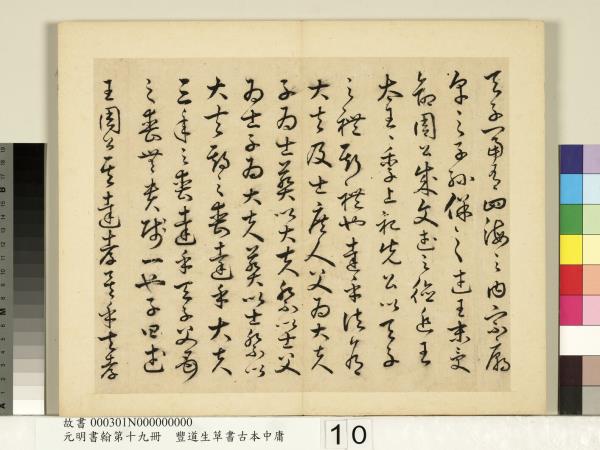 天子富有四海之內宗廟
享之子孫保之武王末受
命周公成文武之德追王
太王〻季上祀先公以天子
之禮斯禮也達乎諸侯
大夫及士庶人父為大夫
子為士葬以大夫祭以士父
為士子為大夫葬以士祭以
大夫期之喪達乎大夫
三年之喪達乎天子父母
之喪無貴賤一也子曰武
王周公其達孝矣乎夫孝
故書 000301N000000000
元明書翰第十九冊 豐道生草書古本中庸
10